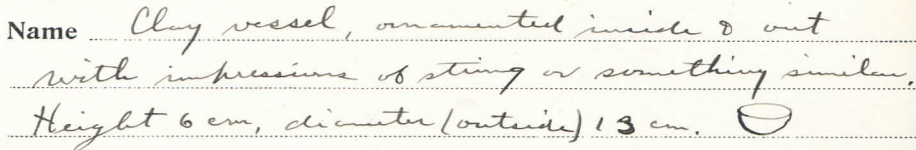 Name Clay vessel, ornamented inside & out
with impressions of string or something similar.
Height 6 cm, diameter (outside) 13 cm.